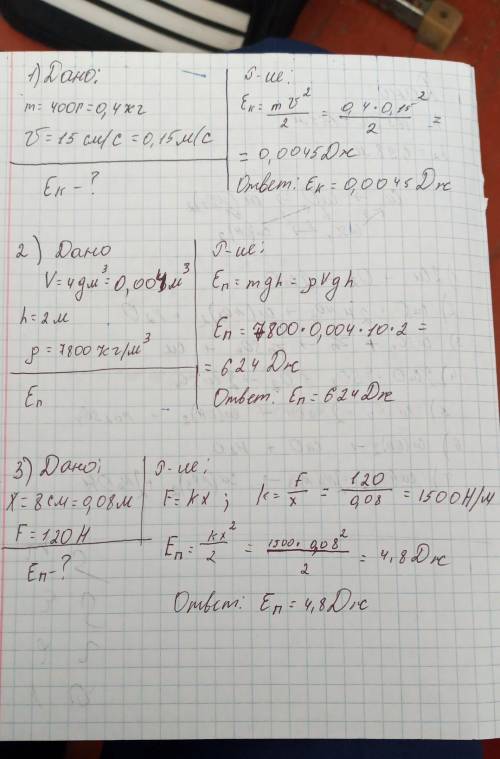 1) Дано:
m = 400г = 0,4 кг
V = 15 см/с = 0,15 м/с
Eк - ?
Р-ие:
Eк = mV²/2 = 0,4·0,15²/2 =
= 0,0045 Дж
Ответ: Eк = 0,0045 Дж
2) Дано
V = 4 дм³ = 0,004 м³
h = 2 м
ρ = 7800 кг/м³
Eп
Р-ие:
Eп = mgh = ρVgh
Eп = 7800·0,004·10·2 =
= 624 Дж
Ответ: Eп = 624 Дж
3) Дано:
X = 8 см = 0,08 м
F = 120 Н
Eп - ?
Р-ие:
F = kx ; k = F/x = 120/0,08 = 1500 Н/м
Eп = kx²/2 = 1500·0,08²/2 = 4,8 Дж
Ответ: Eп = 4,8 Дж